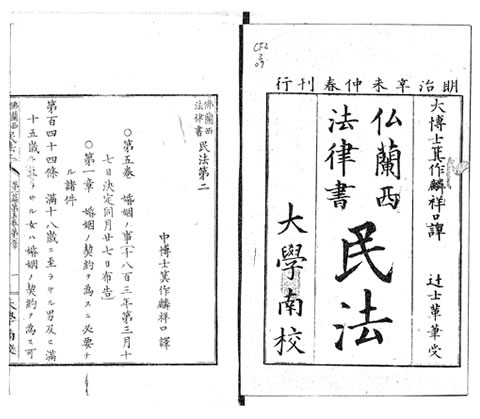 明治辛未仲春刊行
大博士箕作麟祥口譯
辻士革筆受
仏蘭西
法律書
民法
大學南校
佛蘭西
法律書
民法第二
中博士箕作麟祥口譯
〇第五巻 婚姻ノ事(千八百三年第三月十
七日決定同月廿七日布告)
〇第一章 婚姻ノ契約ヲ為スニ必要ナ
ル諸件
第百四十四條 滿十八歳ニ至ラサル男及ヒ滿
十五歳ニ至ラサル女ハ婚姻ノ契約ヲ為ス可
大學南校